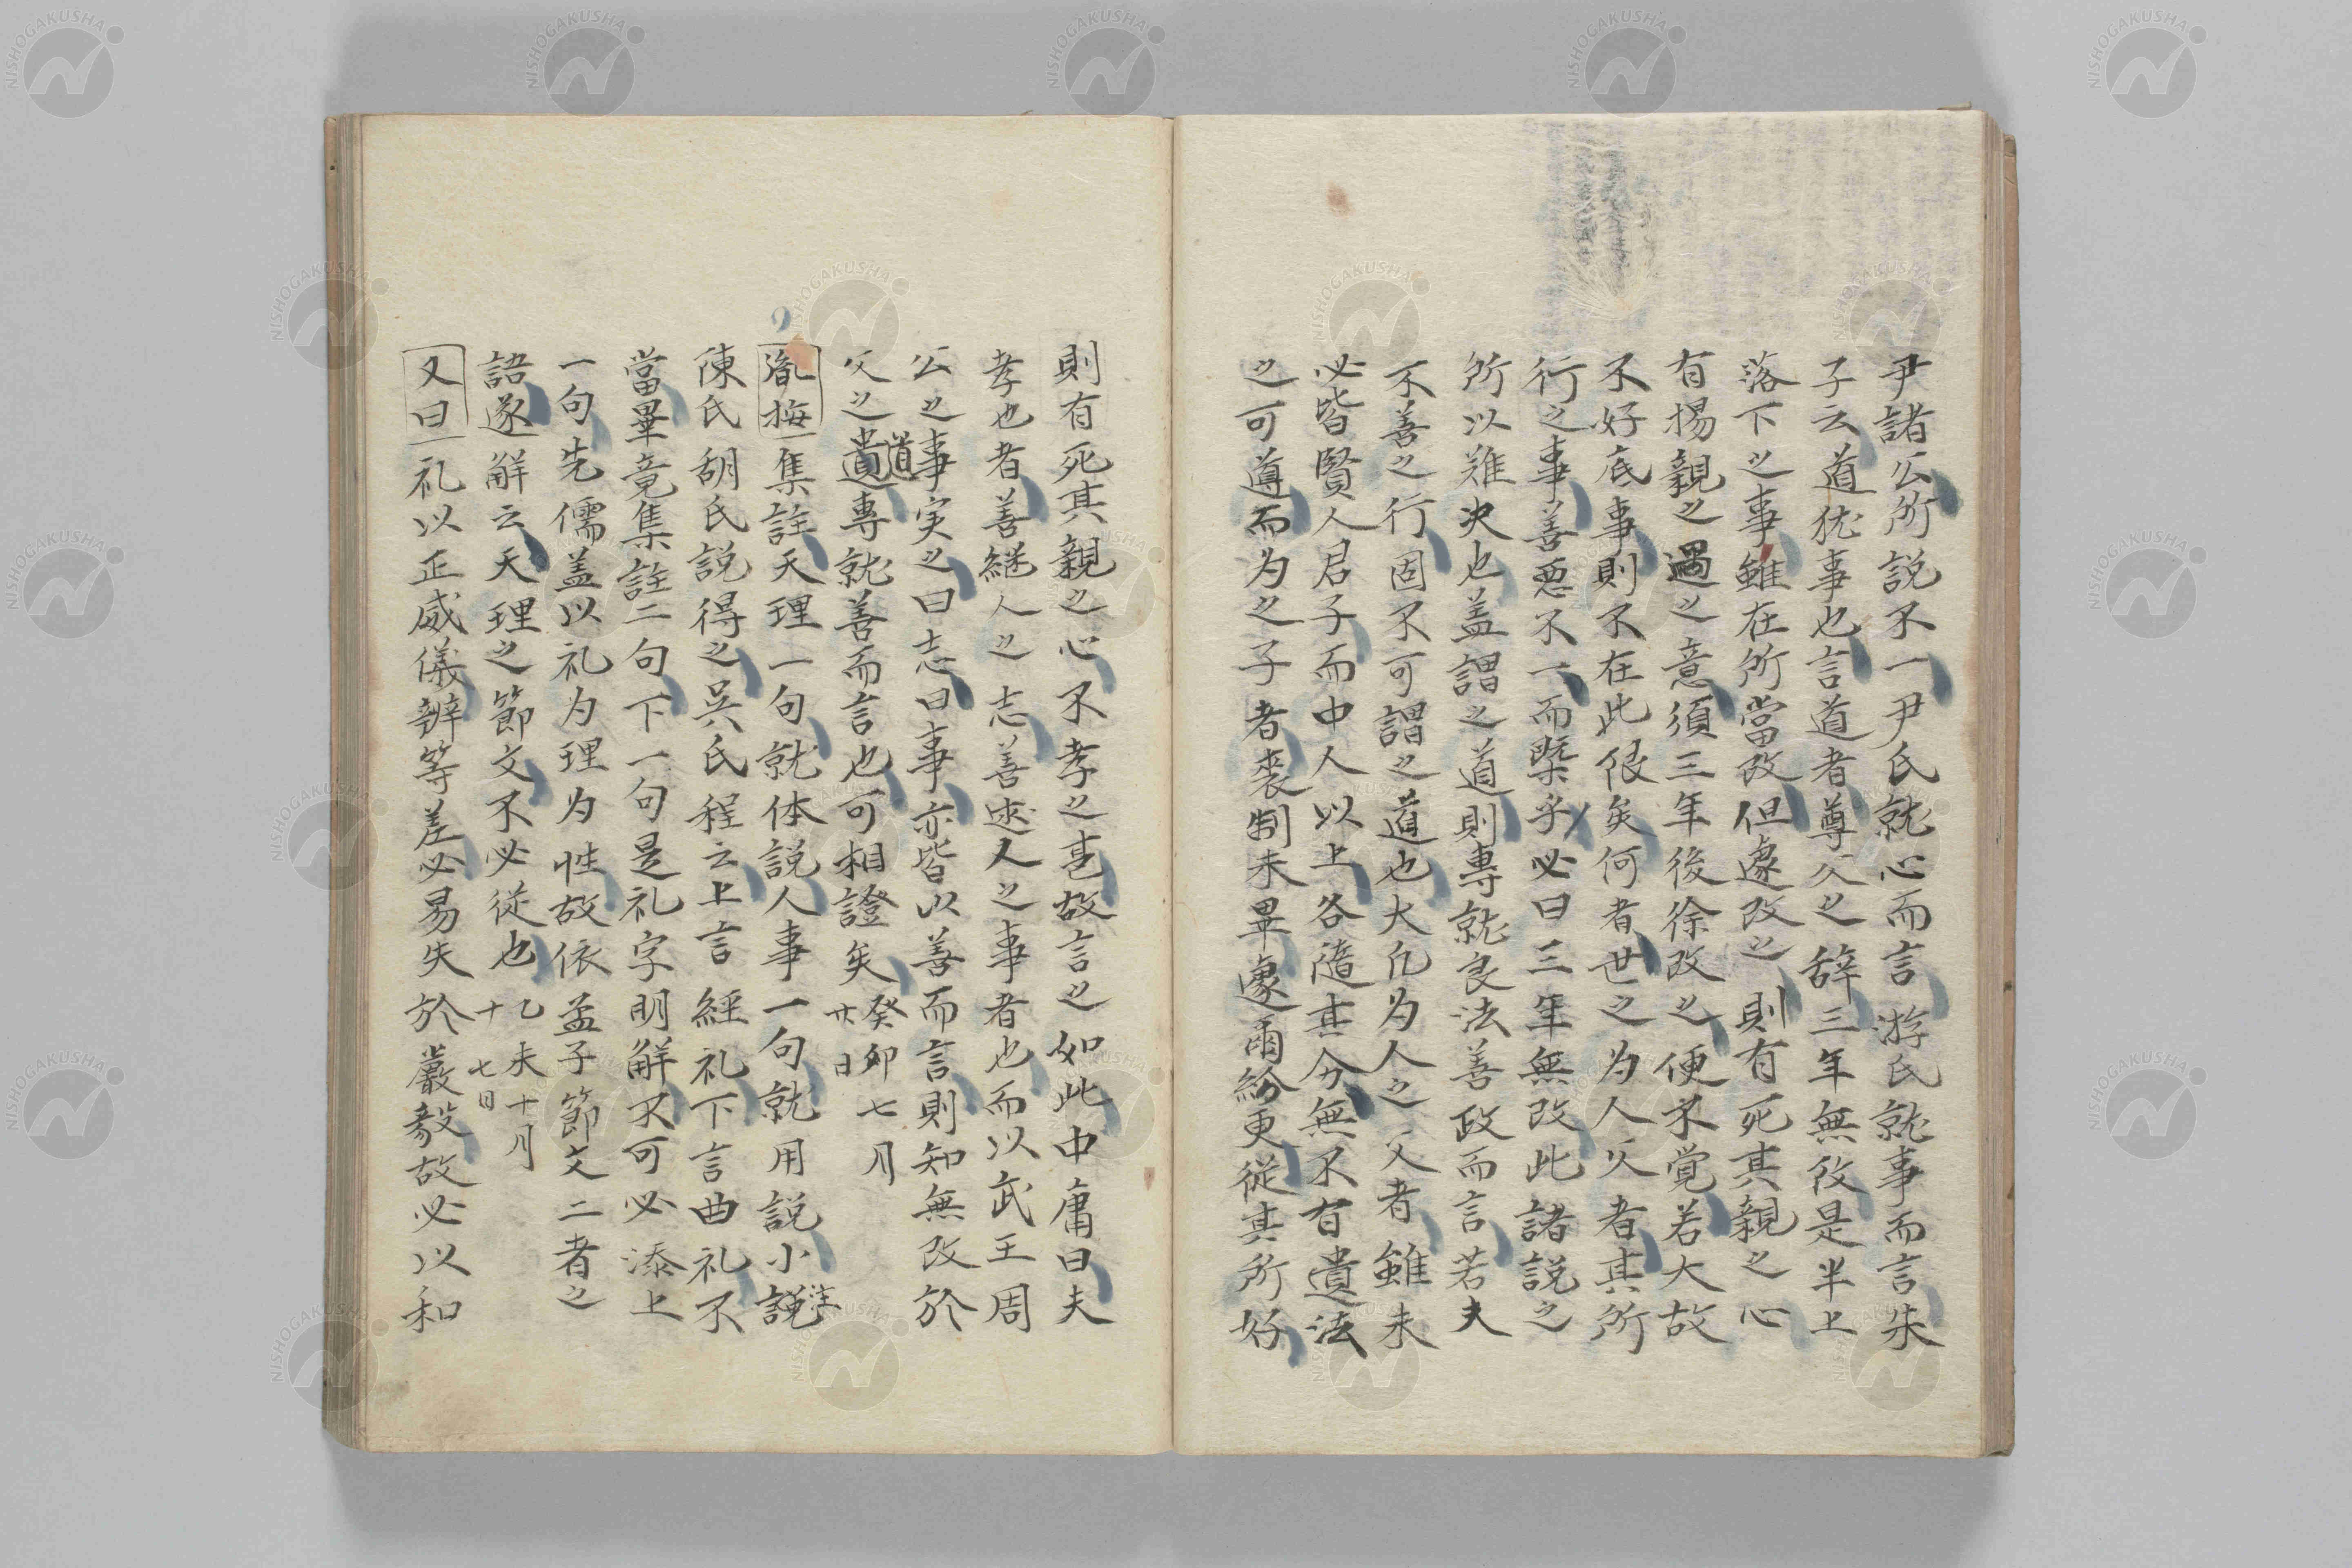 尹諸公所説不一尹氏就心而言游氏就事而言朱
子云道犹事也言道者尊父之辞三年無改是半上
落下之事雖在所當改但遽改之則有死其親之心
有揚親之過之意須三年後徐改之便不覚若大故
不好底事則不在此限矣何者世之为人父者其所
行之事善悪不一而槩乎必曰三年無改此諸説之
所以難决也盖謂之道則專就良法善政而言若夫
不善之行固不可謂之道也大凢为人之父者雖未
必皆賢人君子而中人以上各隨其分無不有遺法
之可遵而为之子者喪制未畢遽爾紛更従其所好
則有死其親之心不孝之甚故言之如此中庸曰夫
孝也者善継人之志善述人之事者也而以武王周
公之事実之曰志曰事亦皆以善而言則知無改於
父之遺道專就善而言也可相證矣癸卯七月廿日
胤按集註天理一句就体説人事一句就用説小註
陳氏胡氏説得之吳氏程云上言經礼下言曲礼不
當畢竟集註二句下一句是礼字明解不可必添上
一句先儒盖以礼为理为性故依孟子節文二者之
語遂解云天理之節文不必従也乙未十月十七日
又曰礼以正威儀辨等差必易失於嚴毅故必以和
NISHOGAKUSHA